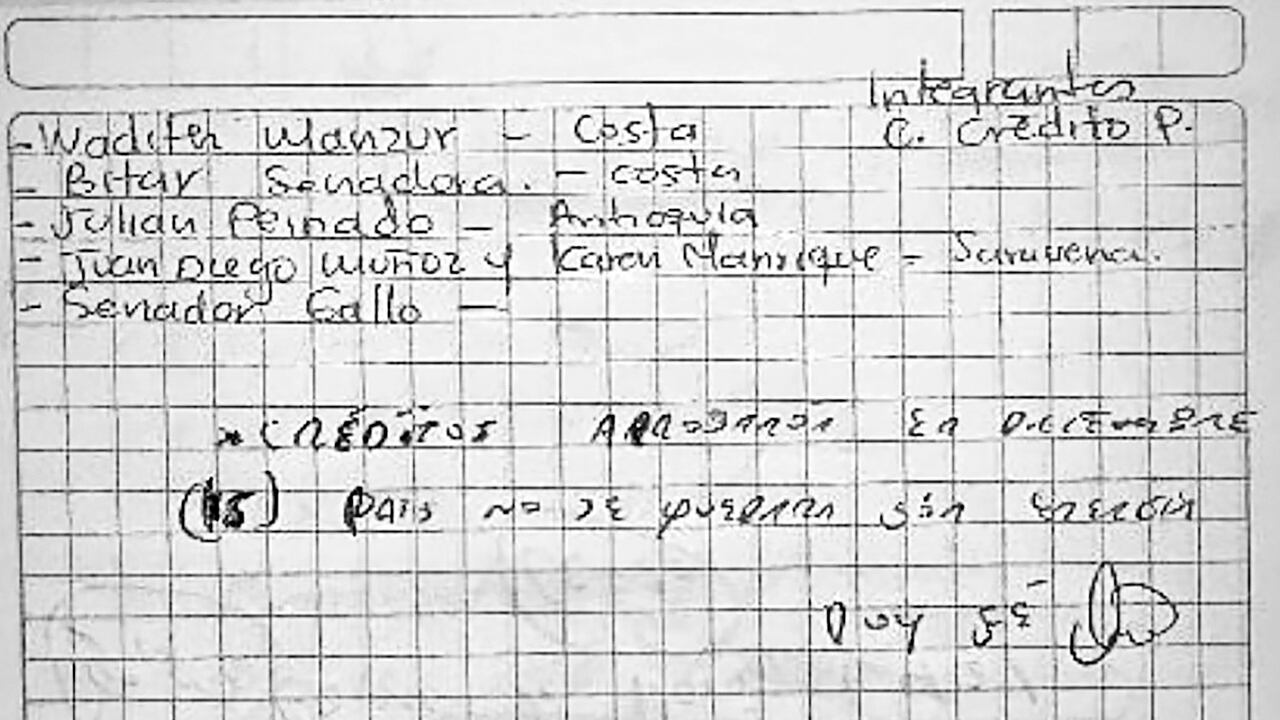 Integrantes
C. Crédito P.
- Wadith Manzur - Costa
- Bitar Senadora. - costa
- Julian Peinado - Antioquia
- Juan Diego Muñoz y Karen Manrique - Saravena.
- Senador Gallo -
* CRÉDITOS APROBARON En DICIEMBRE
(15) PAIS no SE QUEDARA Sin EnERGIA
Doy FÉ